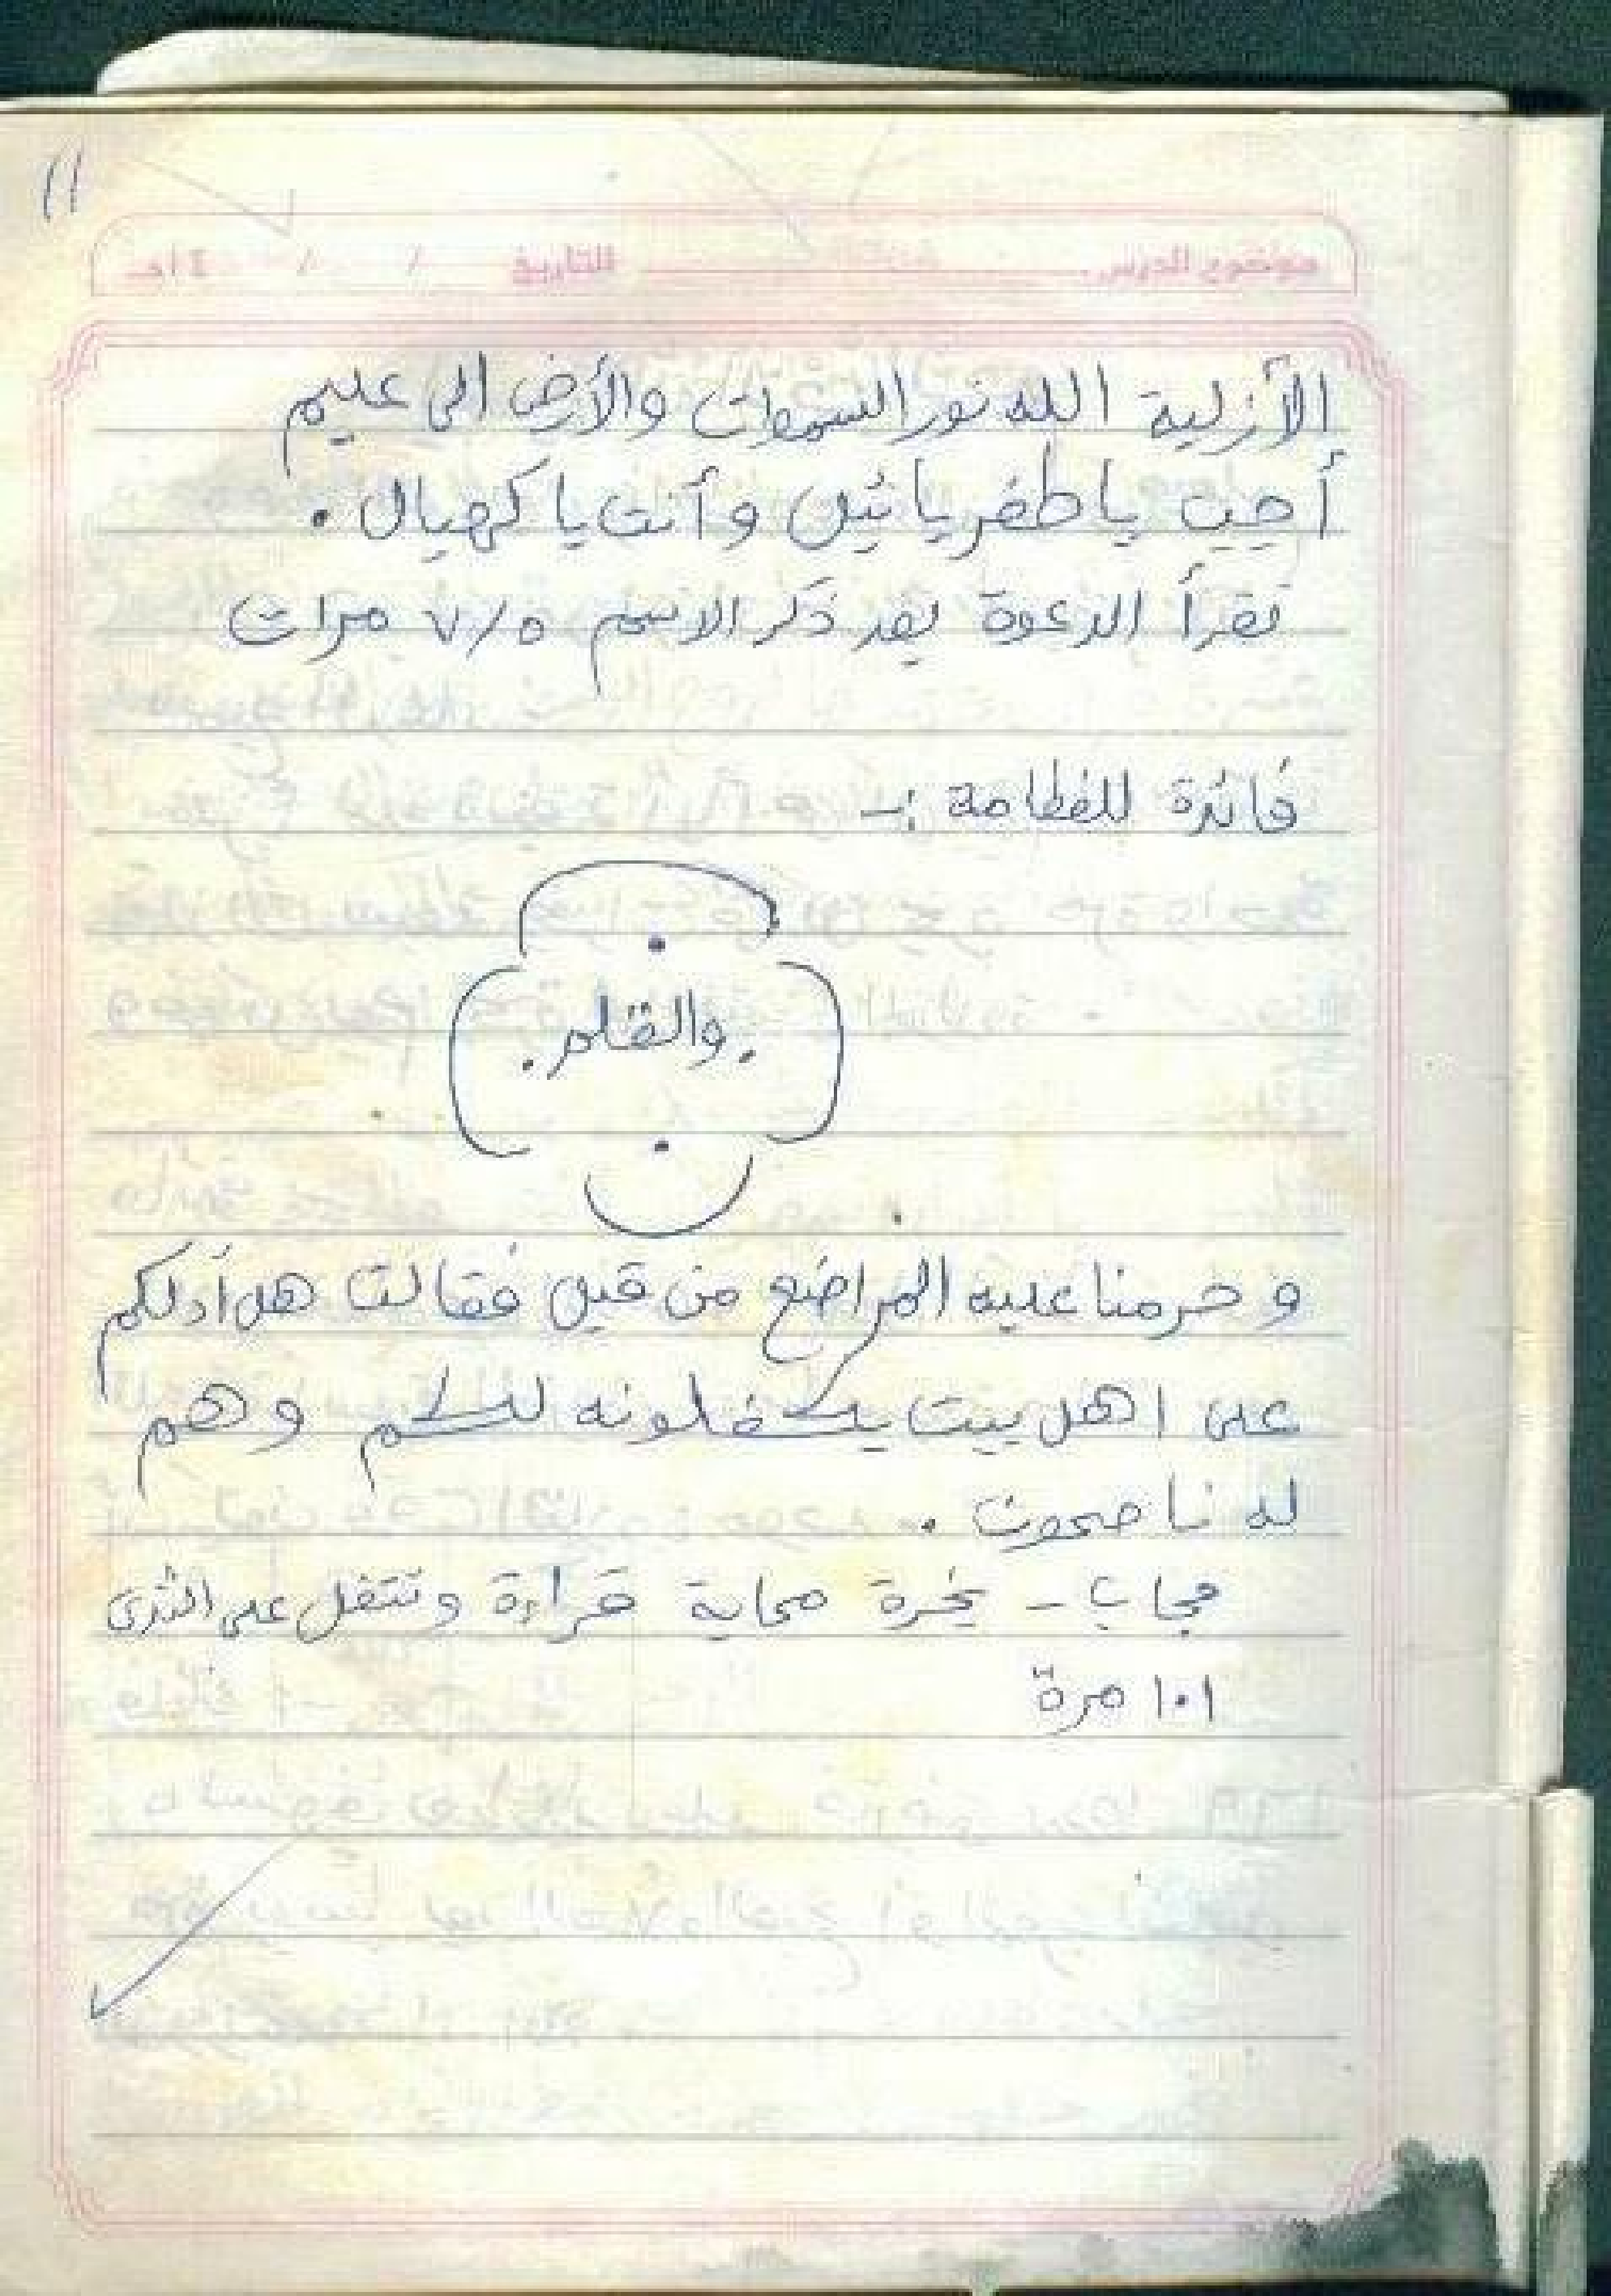 ١١
موضوع الدرس التاريخ / / ١٤هـ
الأزلية الله نور السموات والأرض الى عليم
أجب يا طفريائيل وأنت يا كهيال .
تقرأ الدعوة بعد ذكر الاسم ٧/٥ مرات
فائدة للفطامة :-
ن
. والقلم .
ن
وحرمنا عليه المراضع من قبل فقالت هل أدلكم
على اهل بيت يكفلونه لكم وهم
له ناصحون .
حجاب - بخرة محاية قراءة وتتفل على الثدى
١٠١ مرة